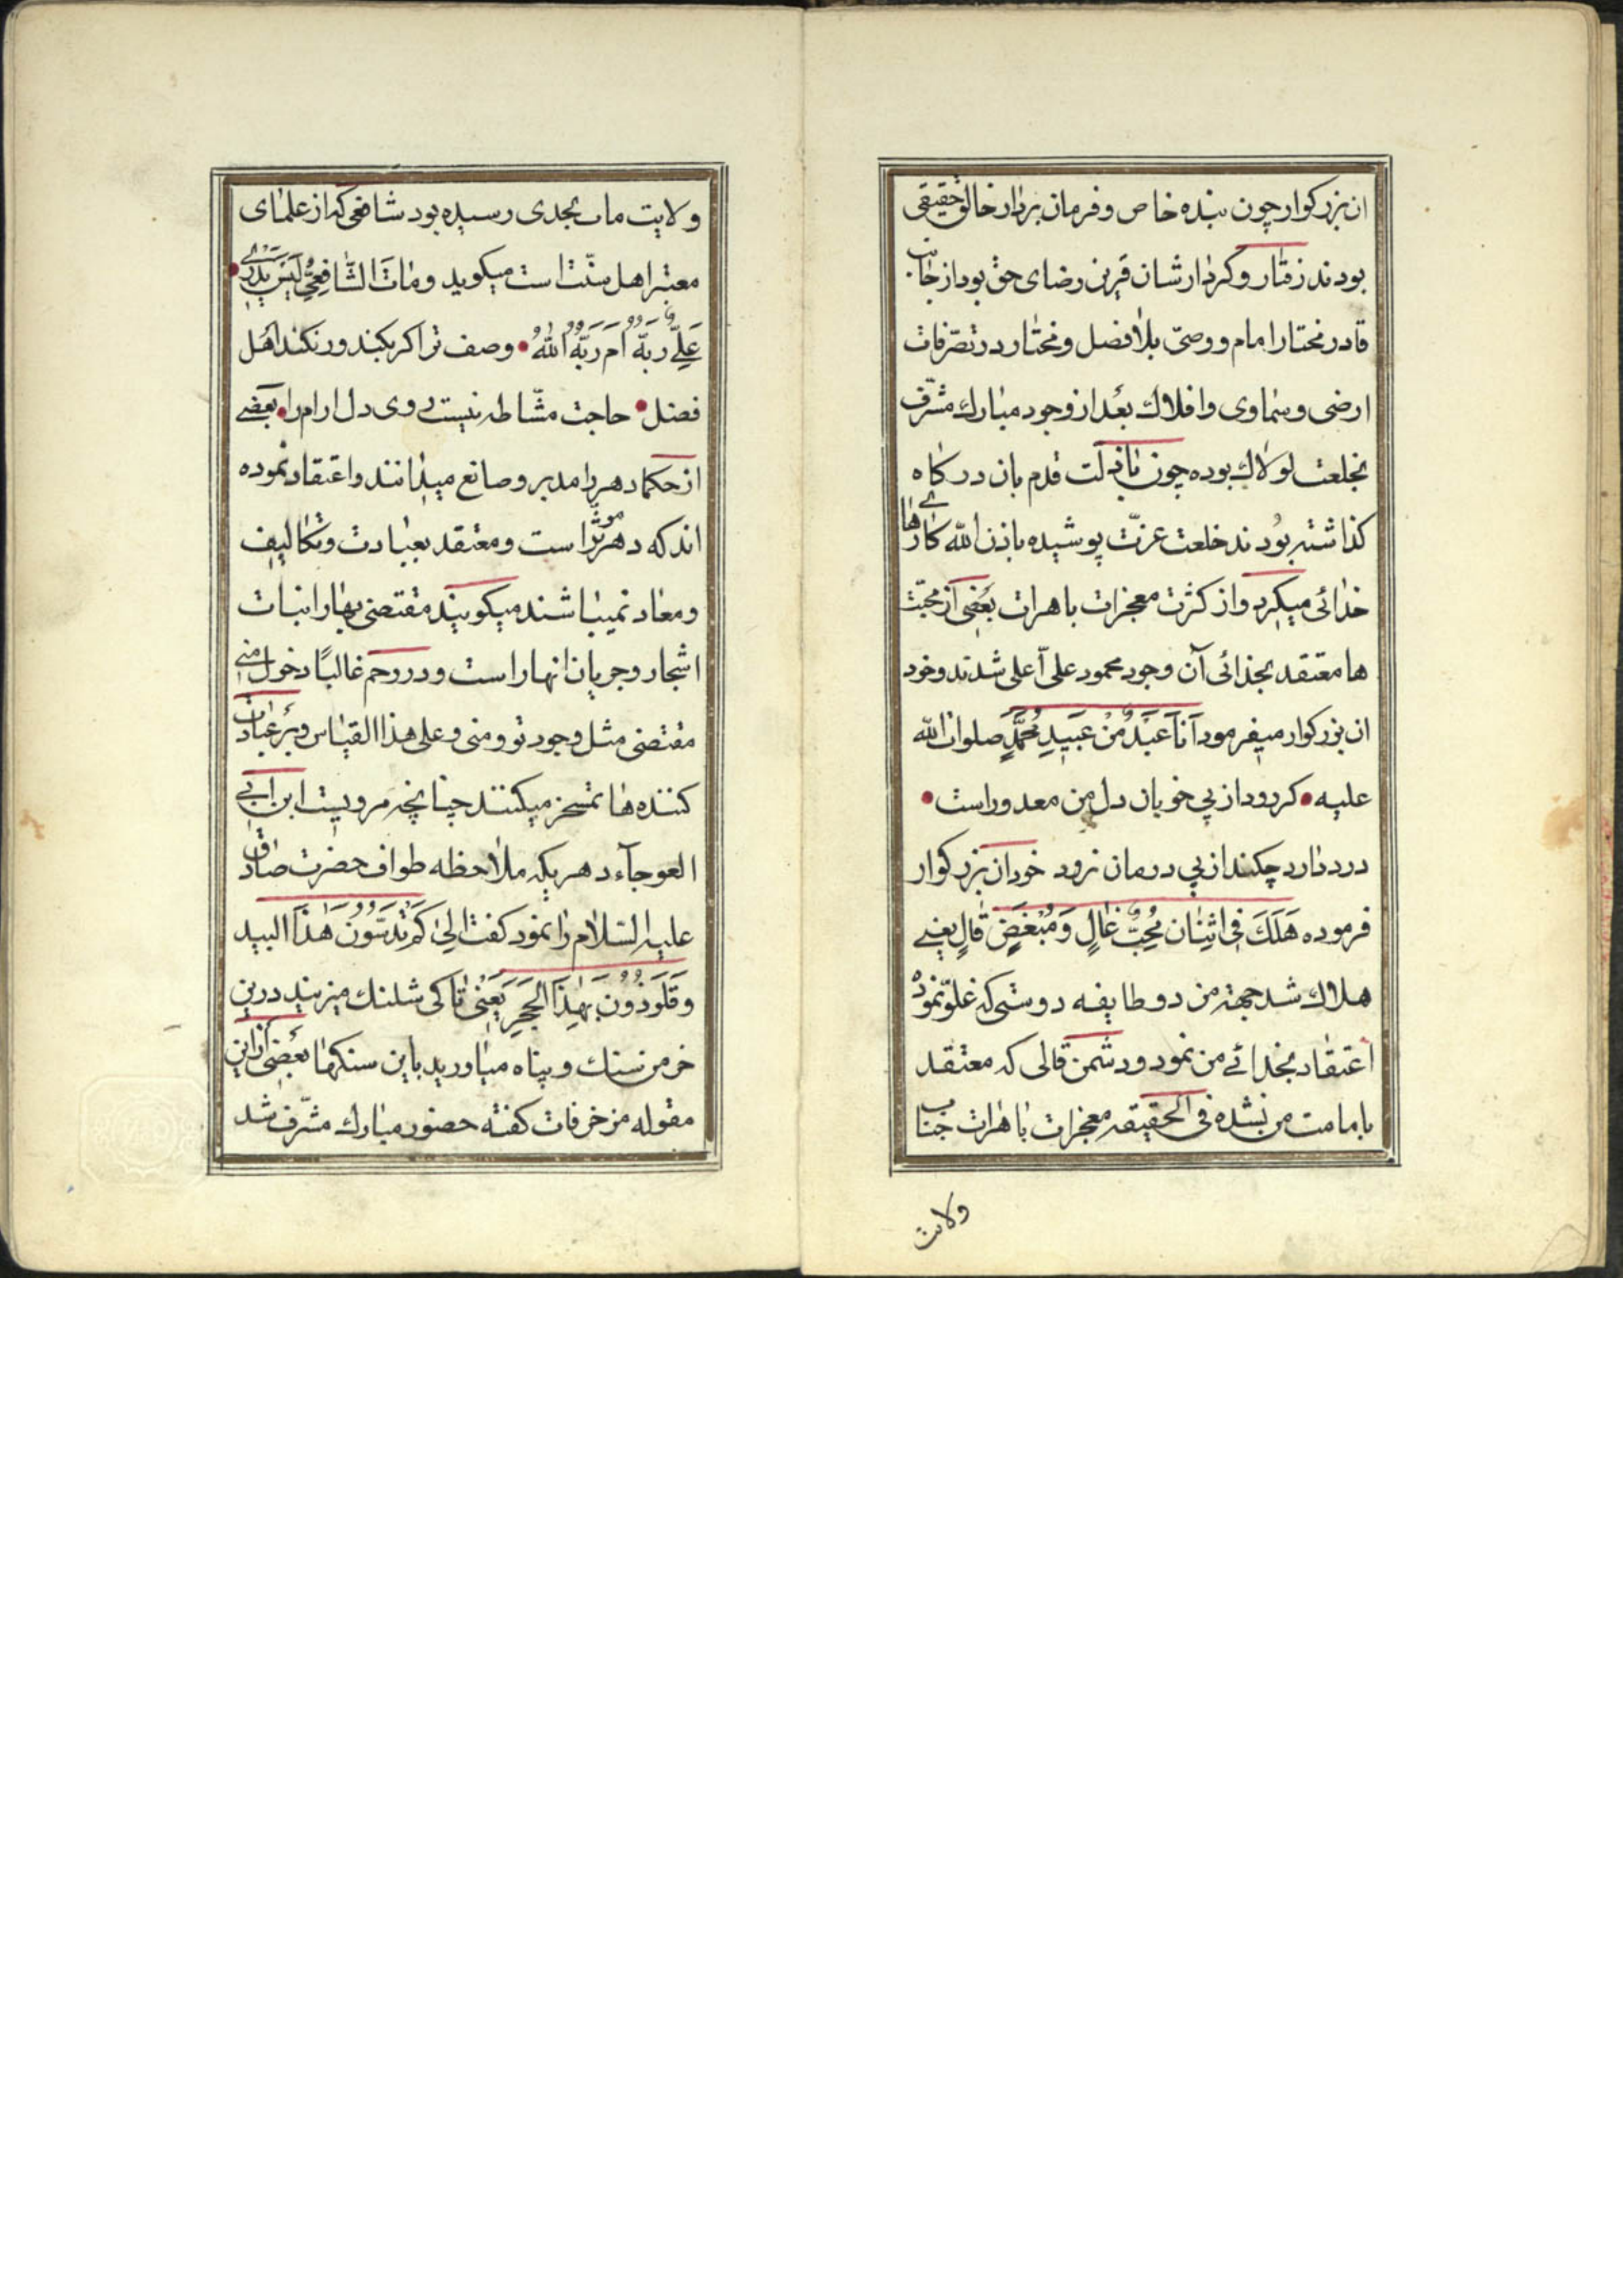 ان بزرکوار چون بنده خاص و فرمان بردار خالق حقیقی
بودند رفتار و کردارشان قرین رضای حق بود از جانب
قادر مختار امام و وصیّ بلا فصل و مختار در تصرّفات
ارضی و سماوی و افلاك بعُد از وجود مبارك مشرّف
بخلعت لولاك بوده چون پا بذلت قدم بان درکاه
کذاشته بُودند خلعت عزّت پوشیده باذن الله کارهای
خدائی میکرد و از کثرت معجزات باهرات بعُضی از محبّت
ها معتقد بخدائی آن وجود محمود علی اعلی شدند و خود
ان بزرکوار میفرمود اَنَا عَبَدٌ مُنْ عَبَیدِ مُحَمَّدٍ صلوات الله
علیه • کر رود از پی خوبان دل من معدور است •
درد دارد چکند از پی درمان نرود خود ان بزرکوار
فرموده هَلَكَ فِی اثِنَان مُحِبٌّ غالٍ وَ مُبْغَضٍ قٰالٍ یعنے
هلاك شد جهة من دو طایفه دوستی که غلوّ نمود
اعتقاد بخدائے من نمود و دشمن قالی که معتقد
بامامت من نشده فی الحقیقه معجزات باهرات جناب
ولایت
ولایت ماب بحدی رسیده بود شافعی که از علمای
معتبر اهل سنّت است میکوید وَ مٰاتَ الشّافِعیُّ لَیَسَ یَدْرے •
عَلِےٌّ رَبَّهُ اَمَ رَبَّهُ اللهُ • وصف ترا کر بکند ور نکند اهُل
فضل • حاجت مشّاطه نیست روی دل ارام را • بعَضے
از حکما دهر را مدبر و صانع میدانند و اعتقاد نموده
اند که دهر مؤثر است و معتقد بعبادت و تکالیف
و معاد نمیباشند میکویند مقتضی بهار انبات
اشجار و جریان انهار است و در رحم غالبًا دخول منے
مقتضی مثل وجود تو و منی و علی هذا القیاس و بَر عبادت
کننده ها تمسخر میکنند چنانچه مرویست ابن ابے
العوجآء دهریکه ملاحظه طواف حضرت صادق
علیه السّلام را نمود کفت الیٰ کَمْ تَدَسُّوُنَ هٰذَا البید
وَ تَلَوَذُوُنَ بِهٰذَا الحَجَرِ یَعِنْی تا کی شلنك میزنید درین
خرمن سنك و پناه میاورید باین سنکها بعُضی از این
مقوله مزخرفات کفته حضور مبارك مشّرف شد